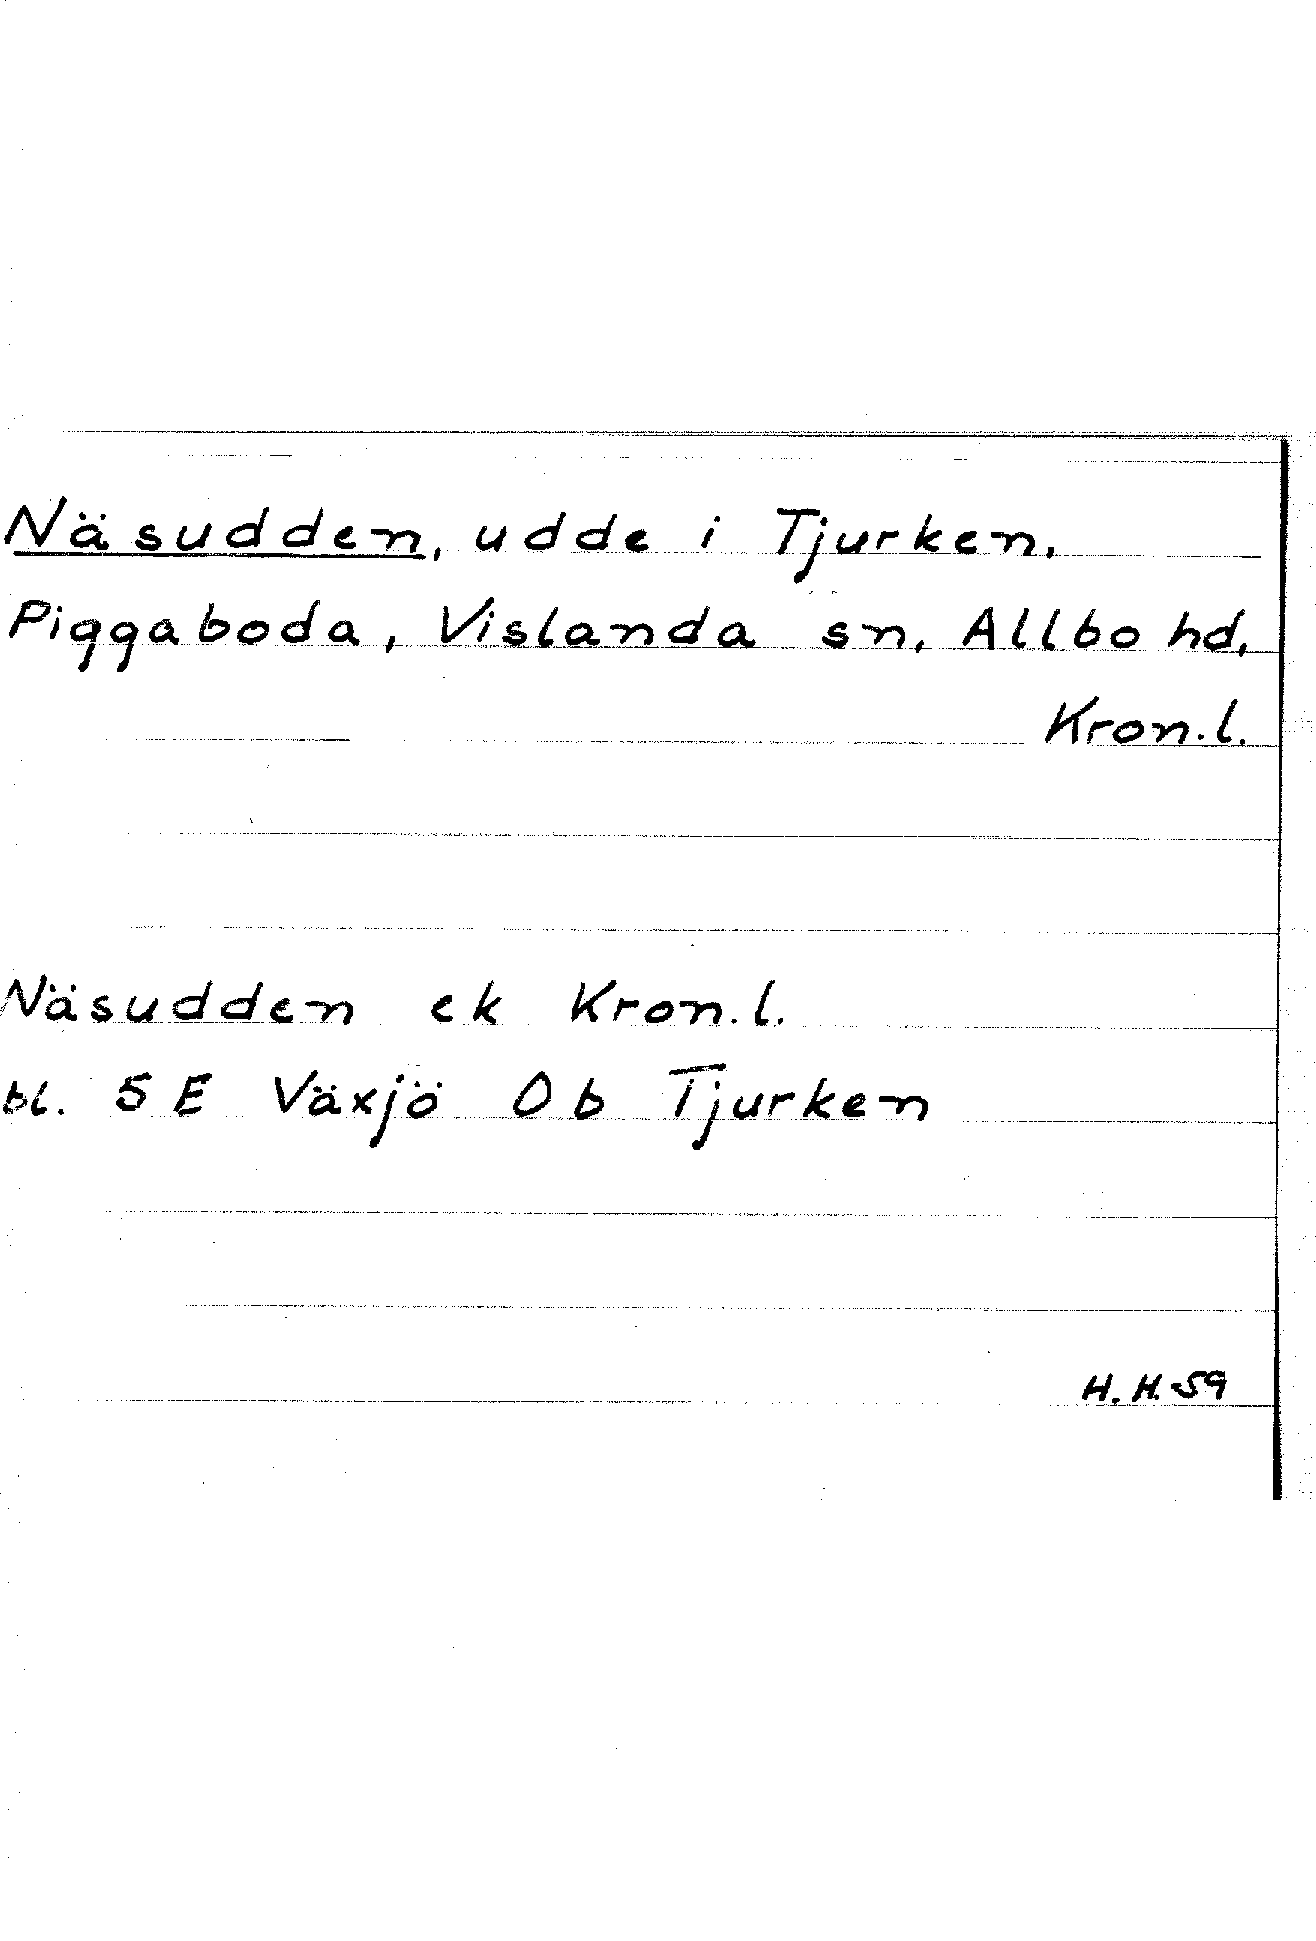 Näsudden, udde i Tjurken,
Piggaboda, Vislanda sn, Allbo hd,
Kron.l.
Näsudden ek Kron.l.
bl. 5 E Växjö 0 b Tjurken
H.H.59